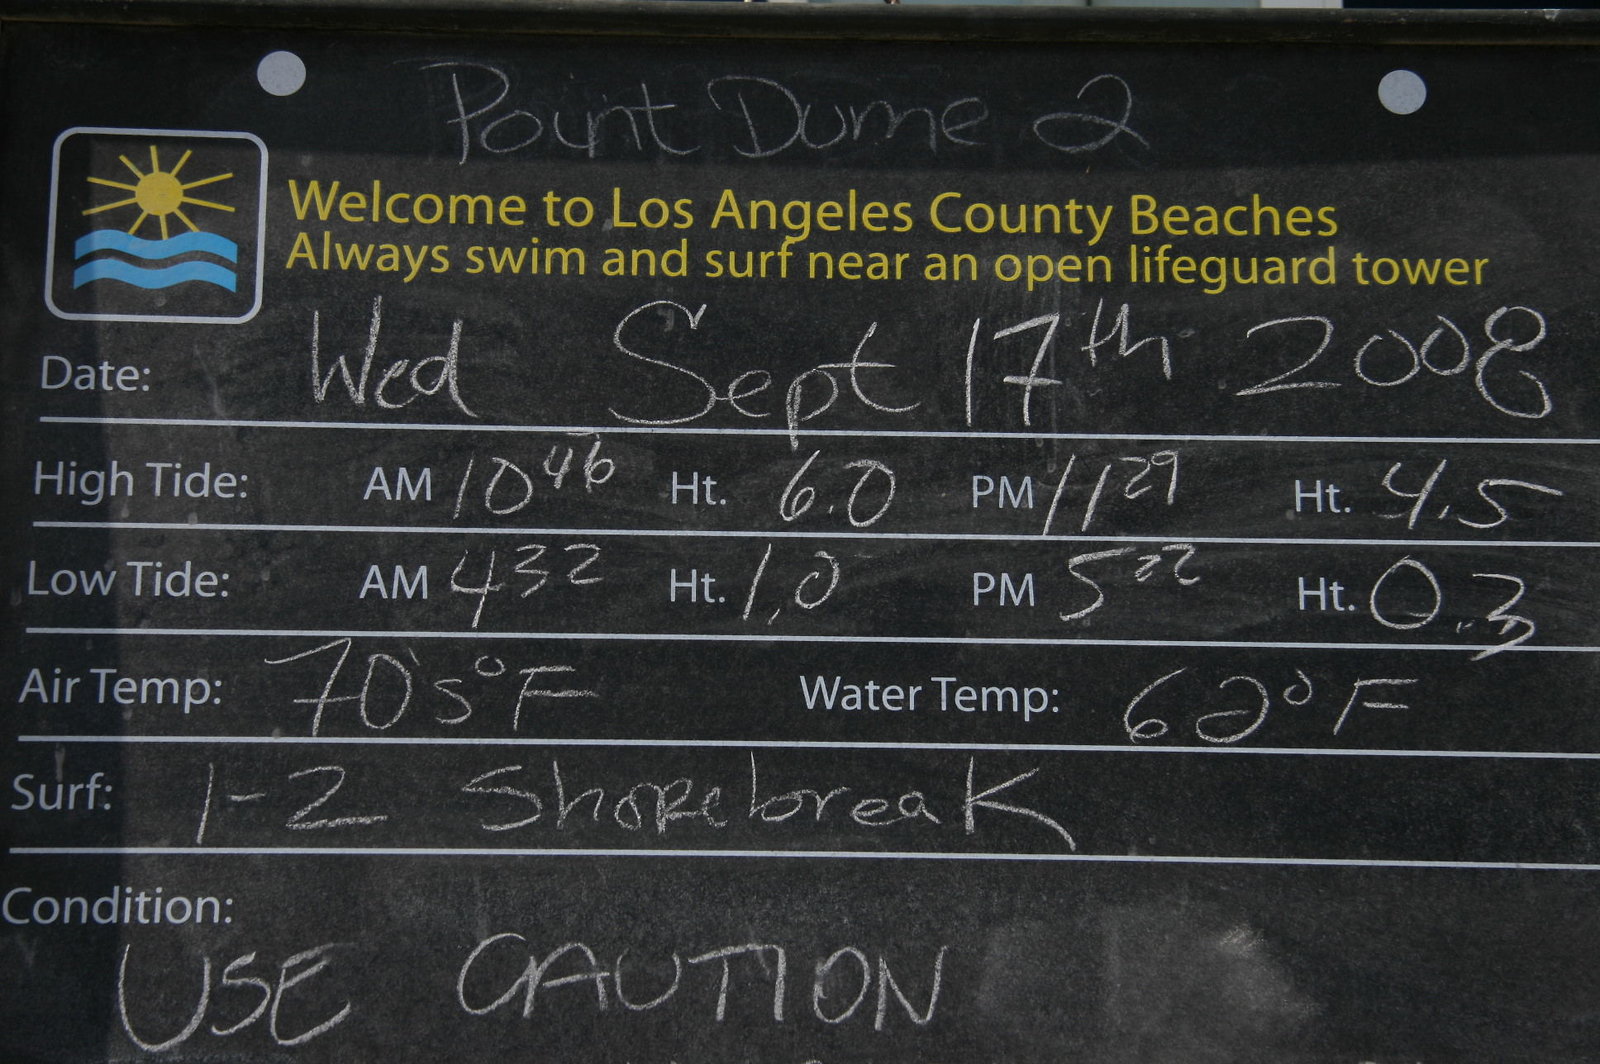 Point Dume 2
Welcome to Los Angeles County Beaches
Always swim and surf near an open lifeguard tower
Date: Wed Sept 17th 2008
High Tide: AM 10 46 Ht. 6.0 PM 11 29 Ht. 4.5
Low Tide: AM 4 32 Ht. 1.0 PM 5 22 Ht. 0.3
Air Temp: 70's °F Water Temp: 62°F
Surf: 1-2 Shorebreak
Condition:
USE CAUTION